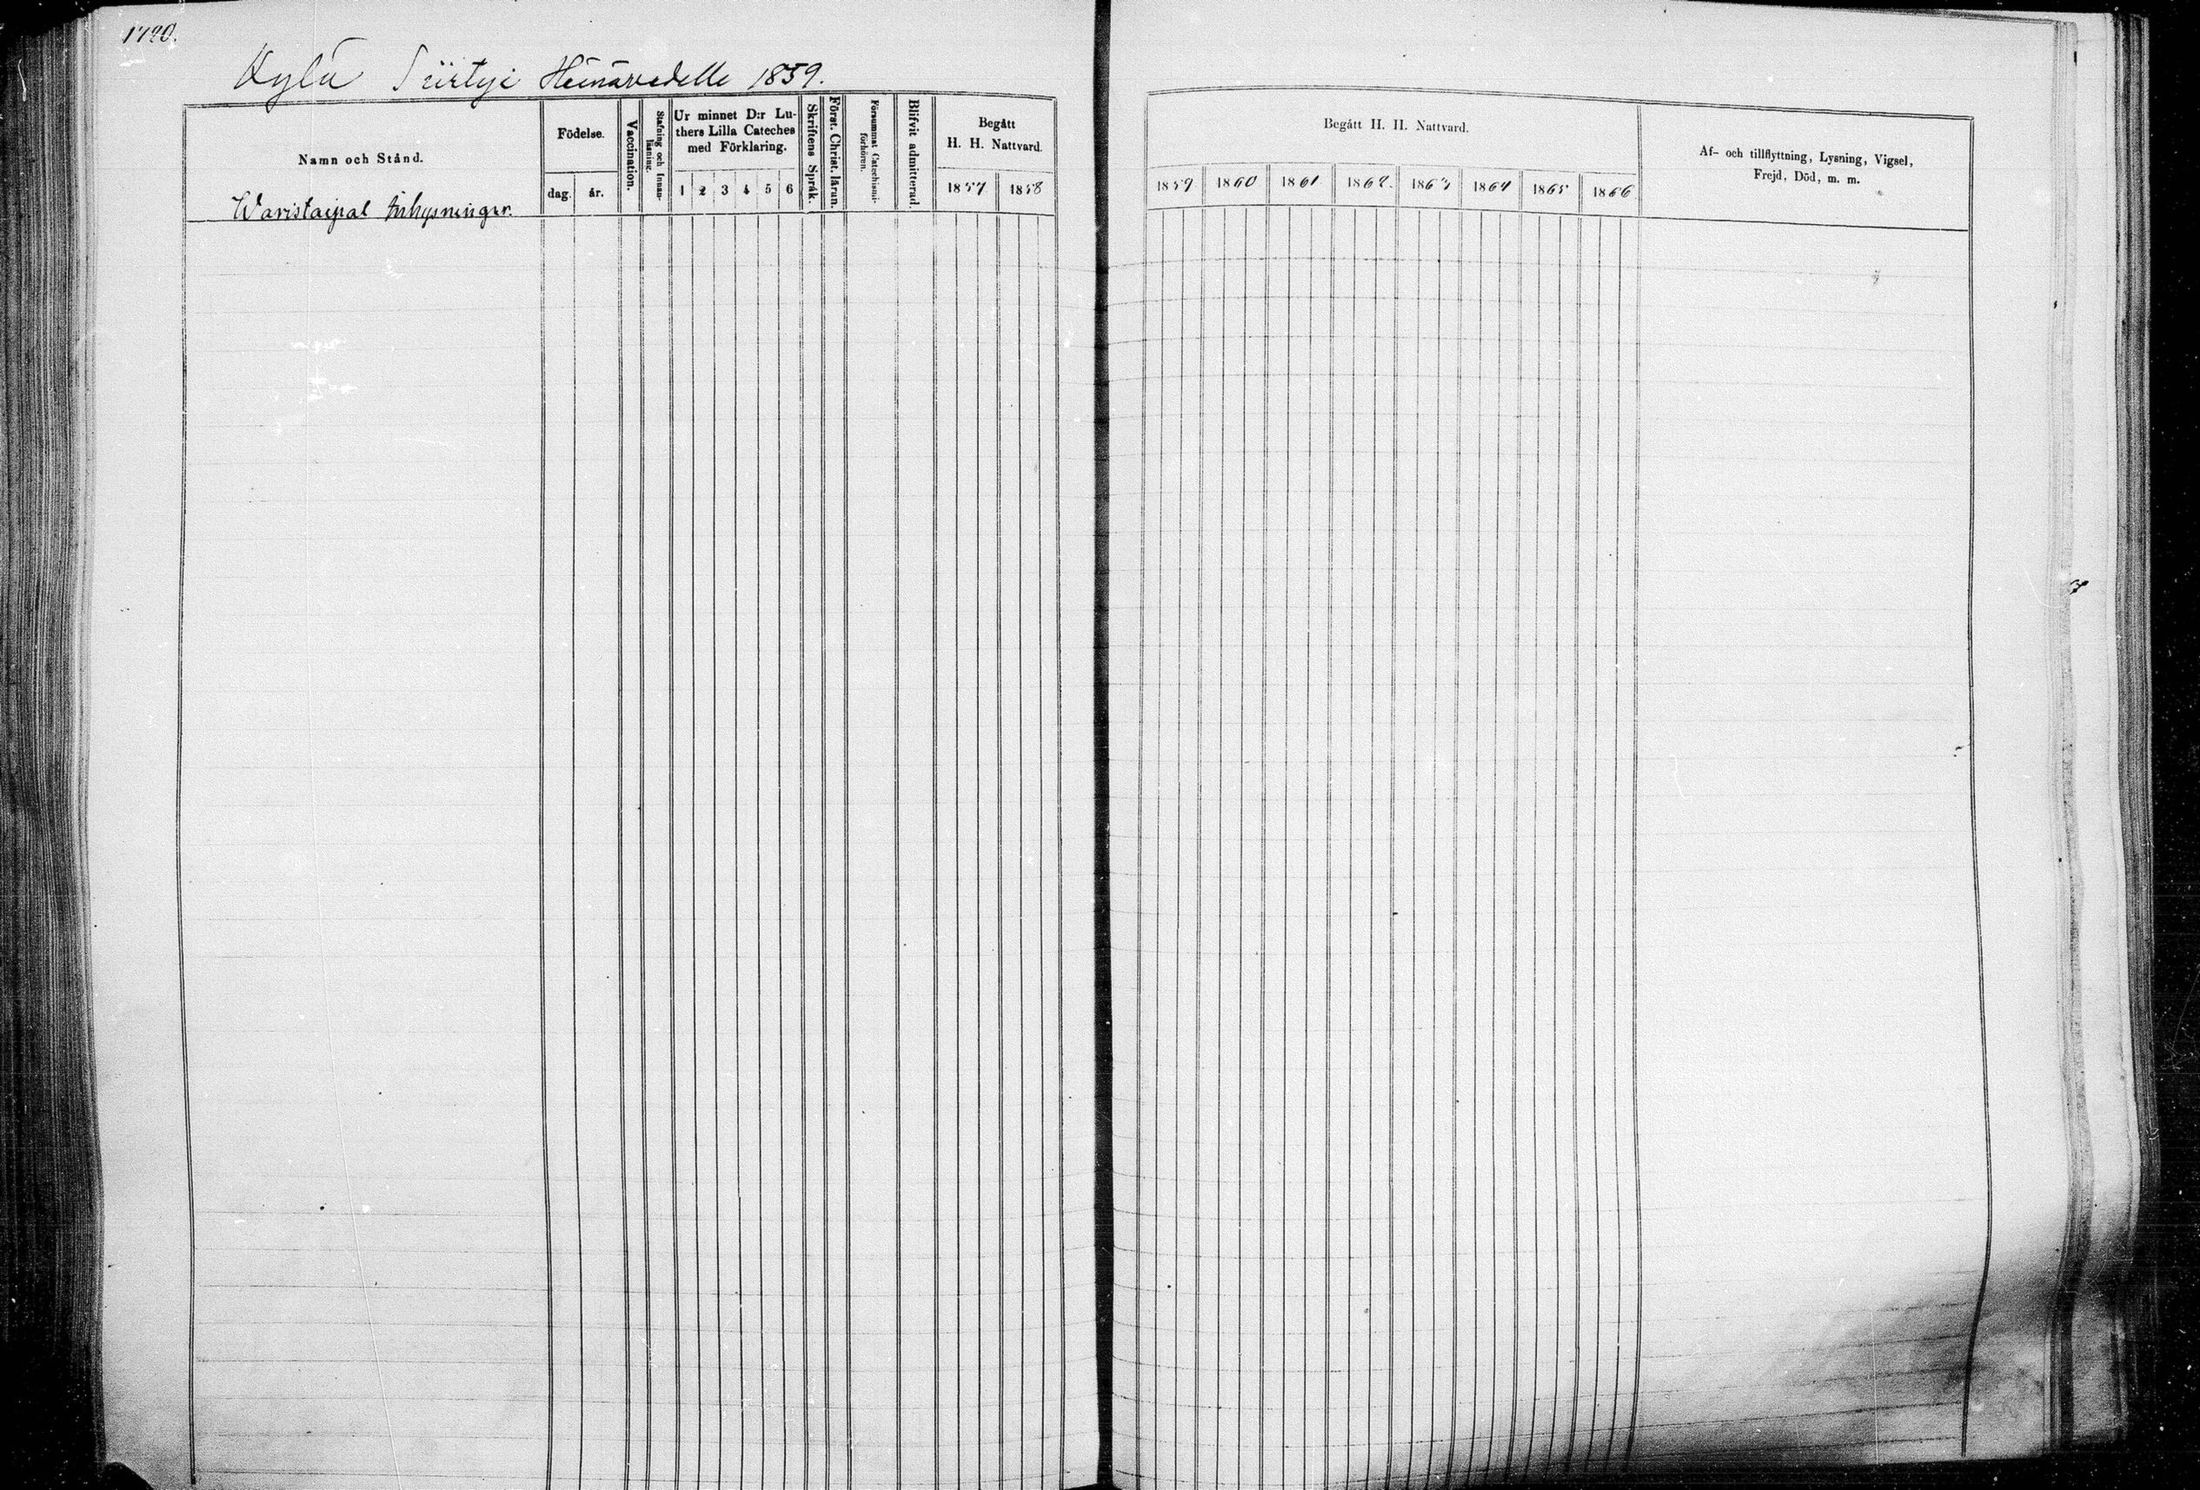 1720.
Kylä Siirtyi Heinävedelle 1859.
Namn och Stånd.
Waristaipal Inhysningar.
Födelse.
dag. år.
Vaccination.
Stafning och Innanläsning.
Ur minnet D:r Lu-
thers Lilla Cateches
med Förklaring.
1 2 3 4 5 6
Skriftens Språk.
Först. Christ. läran.
Försummat Catechismi-
förhören.
Blifvit admitterad.
Begått
H. H. Nattvard.
1857 1858
Begått H. H. Nattvard.
1859 1860 1861 1862. 1863 1864 1865 1866
Af- och tillflyttning, Lysning, Vigsel,
Frejd, Död, m. m.